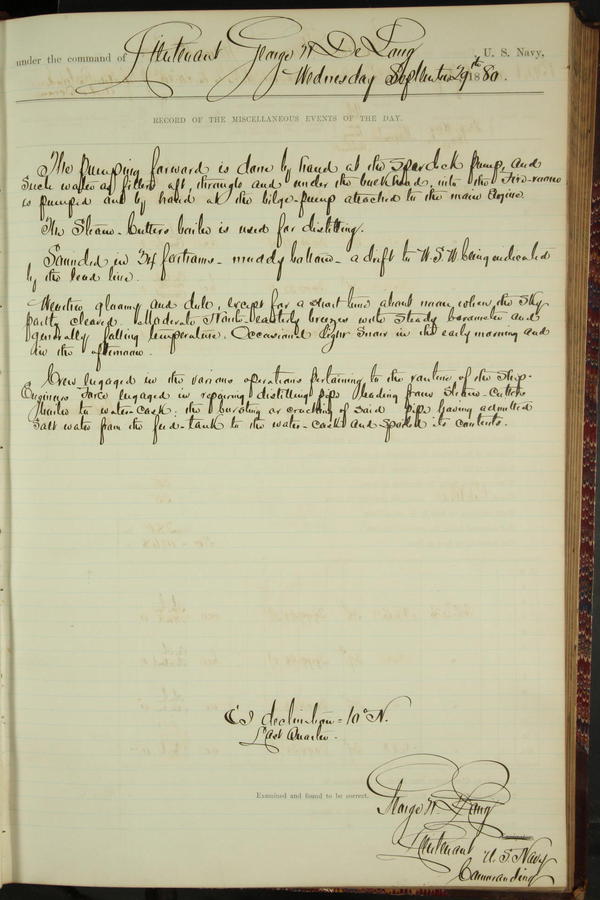 under the command of Lieutenant George W. De Long, U. S. Navy,
Wednesday September 29th 1880.
RECORD OF THE MISCELLANEOUS EVENTS OF THE DAY.
The pumping forward is done by hand at the spardeck pump, and
such water as filters aft, through and under the bulkhead, into the fire-room
is pumped out by hand at the bilge-pump attached to the main Engine.
The Steam-Cutters boiler is used for distilling.
Sounded in 34 fathoms - muddy bottom - a drift to W.S.W. being indicated
by the lead line.
Weather gloomy and dull, except for a short time about noon, when the sky
partly cleared. Moderate North-easterly breezes with steady barometer and
generally falling temperature. Occasional light snow in the early morning and
in the afternoon.
Crew engaged in the various operations pertaining to the routine of the ship.
Engineers force engaged in repairing distilling pipe leading from Steam-Cutters
boiler to water-cask: the bursting or cracking of said pipe having admitted
salt water from the feed-tank to the water-cask and spoiled its contents.
declination = 10° N.
Last Quarter.
Examined and found to be correct.
George W. De Long
Lieutenant U. S. Navy
Commanding